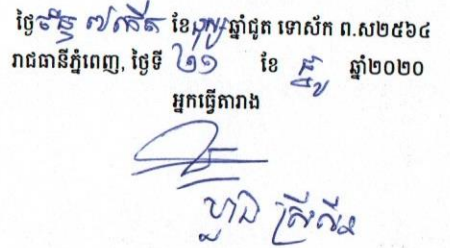 ថ្ងៃ ច័ន្ទ ៧ កើត ខែបុស្ស ឆ្នាំជូត ទោស័ក ព.ស២៥៦៤
រាជធានីភ្នំពេញ, ថ្ងៃទី ២១ ខែ ធ្នូ ឆ្នាំ២០២០
អ្នកធ្វើតារាង
ហួង ស្រីលីន